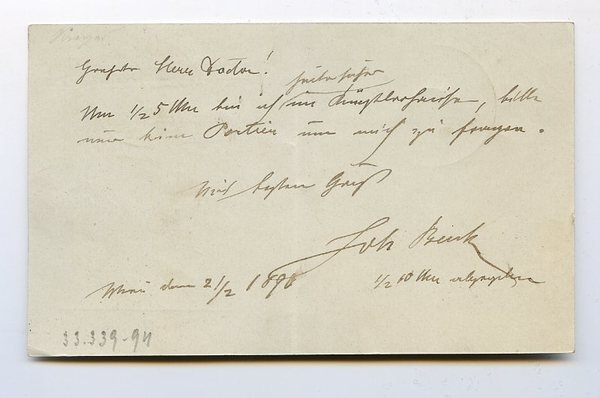 Geehrter Herr Doctor!
Um 1/2 5 Uhr bin ich im Künstlerhause, bitte
nur beim Portier um mich zu fragen.
Mit besten Gruß
Joh Benk
Wien den 21/2 1890
1/2 10 Uhr
33.339-94